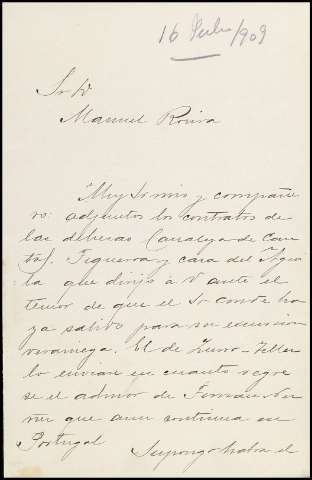 16 Julio/909
Sr D
Manuel Rovira
Muy Sr mio y compañe
ro: adjuntos los contratos de
las dehesas Canaleja de Can
Figueroa y casa del Agui
la que dirijo á V ante el
temor de que el Sr conde ha
ya salido para su excursion
veraniega. El de Zurro-Teller
lo enviare en cuanto regre
se el admor de Fernan Nu
ñez que aun continua en
Portugal
Supongo habra el